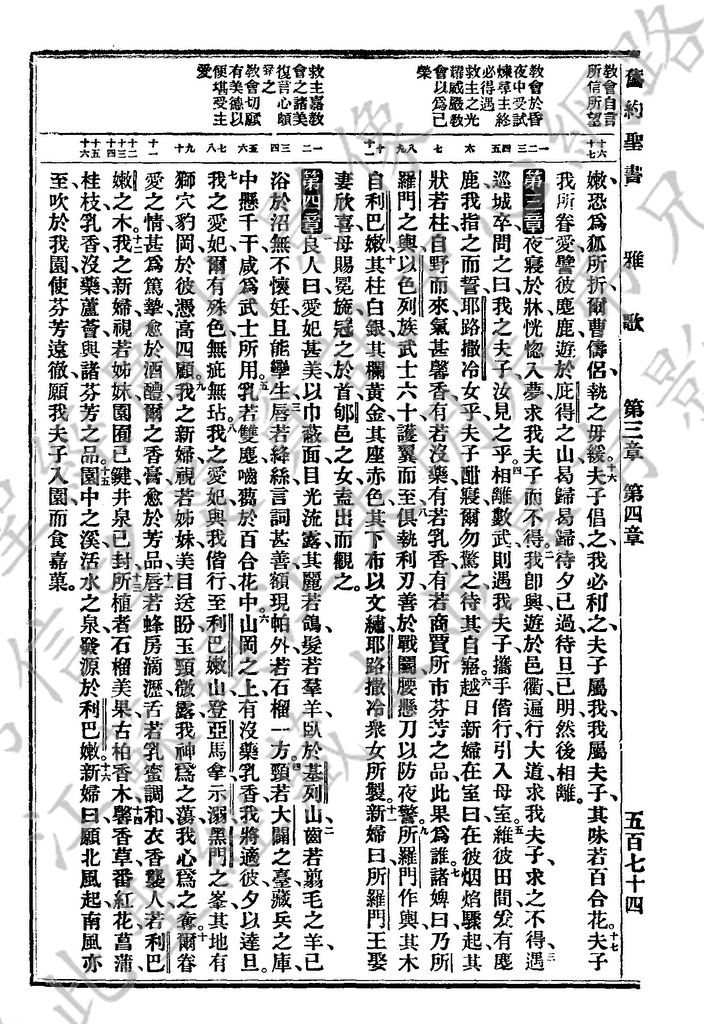 舊約聖書 雅歌 第三章 第四章 五百七十四
教會自言
所信所望
教會於昏
夜中受試
煉尋主終
必得遇
救主之光
耀威嚴教
會以爲己
榮
救主嘉教
會之諸美
復言心頗
尋之
教會切願
有美德以
便堪受主
愛
嫩恐爲狐所折爾曹儔侶執之毋緩夫子倡之我必和之夫子屬我我屬夫子其味若百合花夫子
我所眷愛譬彼麀鹿遊於庇得之山曷歸曷歸待夕已過待旦已明然後相離
第三章夜寢於牀恍惚入夢求我夫子而不得我卽興遊於邑衢遍行大道求我夫子求之不得遇
巡城卒問之曰我之夫子汝見之乎相離數武則遇我夫子攜手偕行引入母室維彼田間爰有麀
鹿我指之而誓耶路撒冷女乎夫子酣寢爾勿驚之待其自寤越日新婦在室曰在彼烟焰驟起其
狀若柱自野而來氣甚馨香有若沒藥有若乳香有若商賈所市芬芳之品此果爲誰諸婢曰乃所
羅門之輿以色列族武士六十護翼而至俱執利刃善於戰鬭腰懸刀以防夜警所羅門作輿其木
自利巴嫩其柱白銀其欄黃金其座赤色其下布以文繡耶路撒冷衆女所製新婦曰所羅門王娶
妻欣喜母賜冕旒冠之於首郇邑之女盍出而觀之
第四章良人曰愛妃甚美以巾蔽面目光流露其麗若鴿髮若羣羊臥於基列山齒若翦毛之羊已
浴於沼無不懷妊且能孿生唇若絳絲言詞甚善額現帕外若石榴一方頸若大闢之臺藏兵之庫
中懸千干咸爲武士所用乳若雙麀嚙薥於百合花中山岡之上有沒藥乳香我將適彼夕以達旦
我之愛妃爾有殊色無疵無玷我之愛妃與我偕行至利巴嫩山登亞馬拿示溺黑門之峯其地有
獅穴豹岡於彼憑高四顧我之新婦視若姊妹美目送盼玉頸儆露我神爲之蕩我心爲之奪爾眷
愛之情甚爲篤摯愈於酒醴爾之香膏愈於芳品唇若蜂房滴瀝舌若乳蜜調和衣香襲人若利巴
嫩之木我之新婦視若姊妹園囿已鍵井泉已封所植者石榴美果古柏香木馨香草番紅花菖蒲
桂枝乳香沒藥蘆薈與諸芬芳之品園中之溪活水之泉發源於利巴嫩新婦曰願北風起南風亦
至吹於我園使芬芳遠徹願我夫子入園而食嘉菓